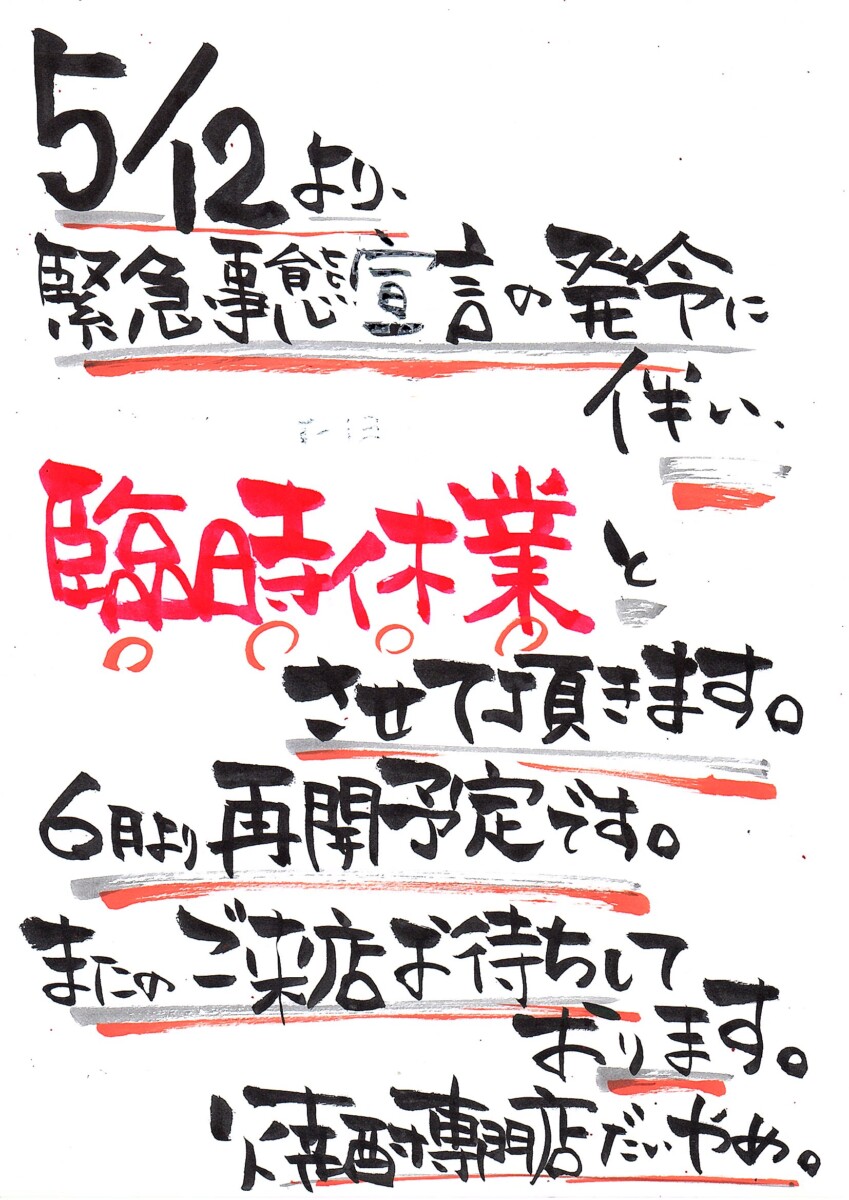 5/12より、
緊急事態宣言の発令に
伴い、
臨時休業と
させて頂きます。
6月より再開予定です。
またのご来店お待ちして
おります。
焼酎専門店だいやめ。